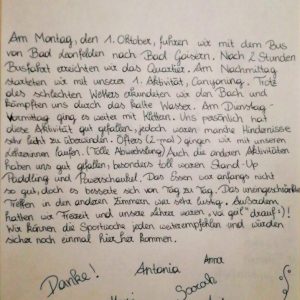 Am Montag, den 1. Oktober, fuhren wir mit dem Bus
von Bad Leonfelden nach Bad Goisern. Nach 2 Stunden
Busfahrt erreichten wir das Quartier. Am Nachmittag
starteten wir mit unserer 1. Aktivität, Canyoning. Trotz
des schlechten Wetters erkundeten wir den Bach und
kämpften uns durch das kalte Wasser. Am Dienstag-
Vormittag ging es weiter mit Klettern. Uns persönlich hat
diese Aktivität gut gefallen, jedoch waren manche Hindernisse
sehr leicht zu überwinden. Öfters (2 mal) gingen wir mit unseren
Lehrerinnen laufen. (Tolle Abwechslung) Auch die anderen Aktivitäten
haben uns gut gefallen, besonders toll waren Stand-Up
Paddling und Powerschaukel. Das Essen war anfangs nicht
so gut, doch es besserte sich von Tag zu Tag. Das uneingeschränkte
Treffen in den anderen Zimmern war sehr lustig. Außerdem
hatten wir Freizeit und unsere Lehrer waren "gut" drauf :)!
Wir können die Sportwoche jeden weiterempfehlen und würden
sicher noch einmal hier her kommen.
Danke! Antonia Anna
Sarah